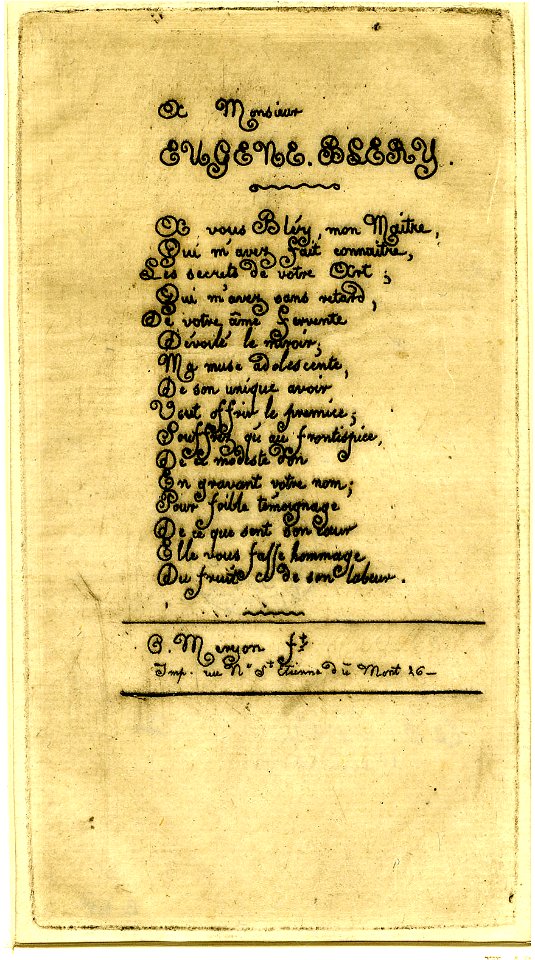 A Monsieur
EUGENE. BLERY.
A vous Bléry, mon Maitre,
Qui m'avez fait connaitre,
Les secrets de votre Art;
Qui m'avez sans retard,
De votre âme fervente
Dévoilé le miroir;
Ma muse adolescente,
De son unique avoir
Veut offrir le premice;
Souffrez qu'au frontispice,
De ce modeste don
En gravant votre nom;
Pour foible témoignage
De ce que sent son cœur
Elle vous fasse hommage
Du fruit de son labeur.
C. Meryon ft
Imp. rue Nve St Etienne du Mont 26